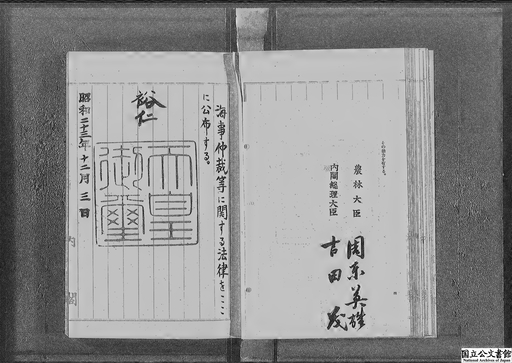 農林大臣 周东英雄
内閣總理大臣 吉田茂
海事仲裁等に関する法律をここ
に公布する。
裕仁
天皇
御璽
昭和二十三年十二月三日
内閣
国立公文書館
National Archives of Japan